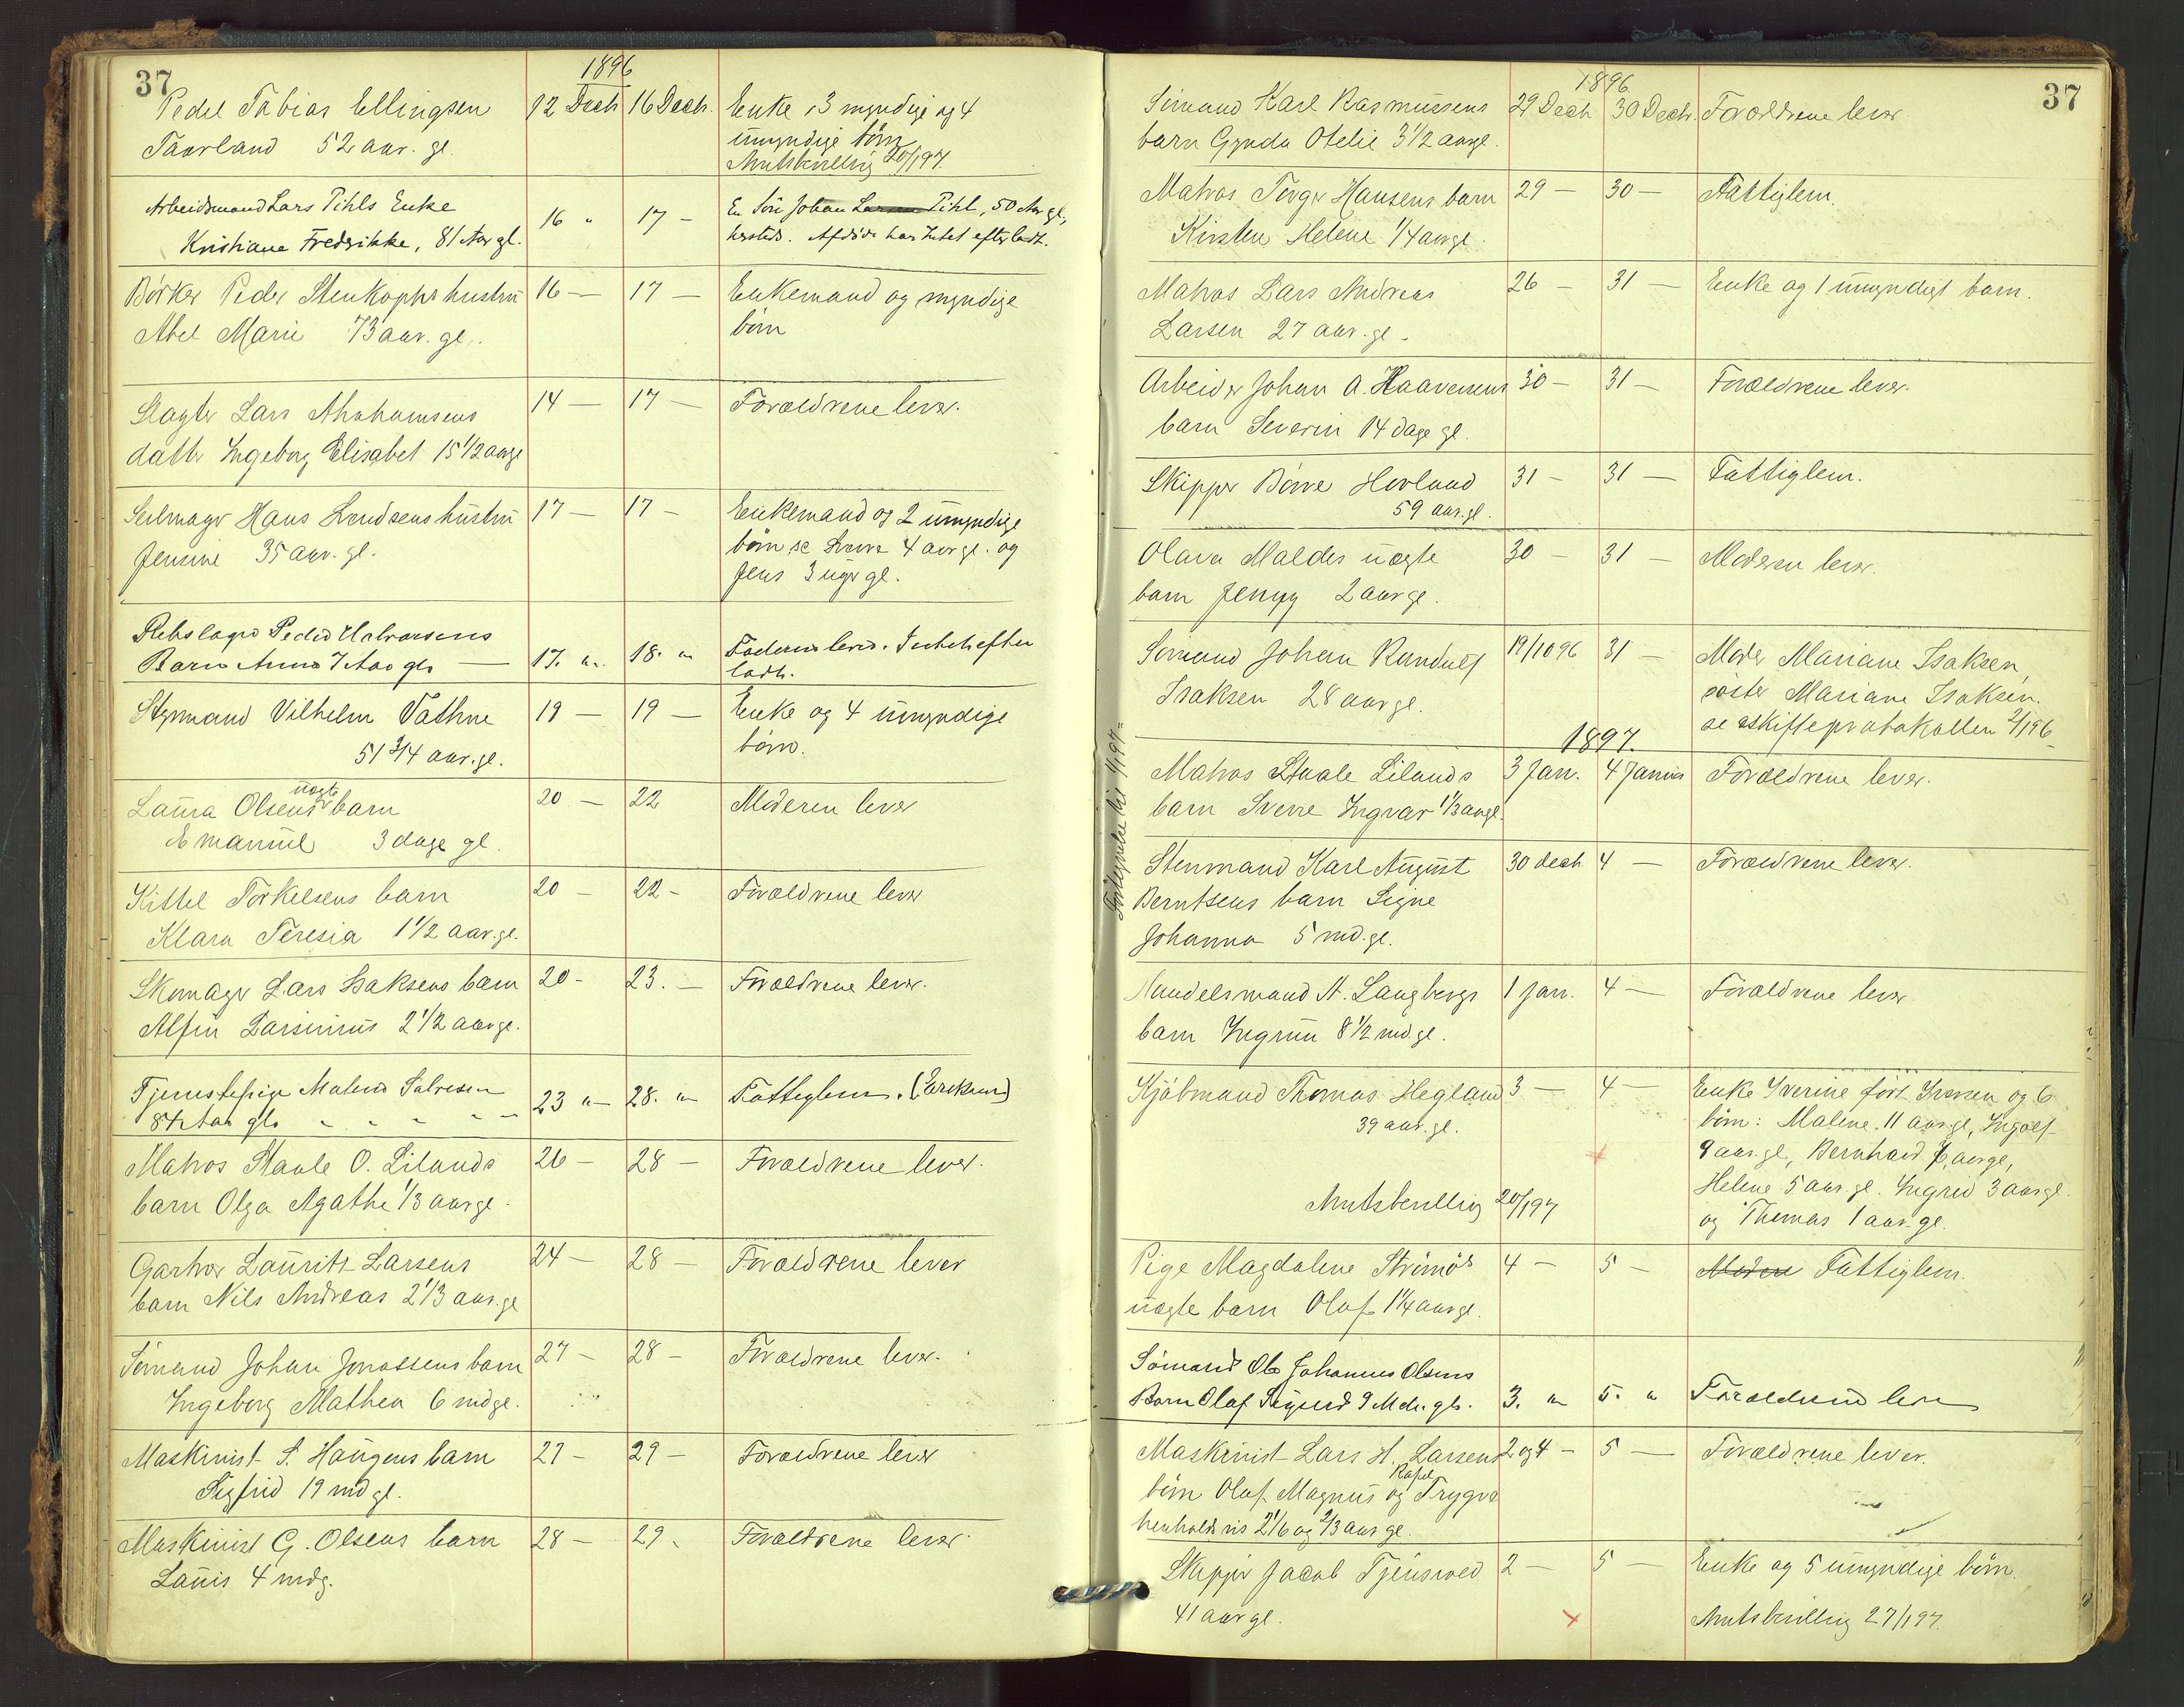 37
1896
Pedel Tobias Ellingsen 12 Decb. 16 Decb. Enke, 3 myndige og 4
Taarland 52 aar. gl. umyndige børn
Amtsbevilling 20/1 97.
Arbeidsmand Lars Pihls Enke 16 " 17 - En Søn Johan Larsen Pihl, 50 Aar gl.,
Kristiane Fredrikke, 81 Aar gl. hersteds. Afdøde har Intet efterladt.
Bødker Peder Stenkophs hustru 16 — 17 — Enkemand og myndige
Abel Marie 73 aar. gl. børn
Slagter Lars Abrahamsens 14 — 17 — Forældrene lever.
datter Ingeborg Elisabet 15 1/2 aargl
Seilmager Hans Svendsens hustru 17 — 17 — Enkemand og 2 umyndige
Jensine 35 aar. gl. børn se 4 aar gl. og
Jens 3 uger gl.
Rebslager Peder Halvorsens
Barn Anna 7 Aar gl. — 17. " 18. " Faderen lever. Intet efter
ladt.
Styrmand Vilhelm Tathne 19 — 19 — Enke og 4 umyndige
51 3/4 aar. gl. børn.
uægte
Laura Olsens barn 20 — 22 Moderen lever
Emanuel 3 dage gl.
Kittel Torkelsens barn 20 — 22 - Forældrene lever
Klara Teresia 1 1/2 aar. gl.
Skomager Lars Isaksens barn 20 - 23. — Forældrene lever.
Alfin Larsinius 2 1/2 aar gl.
Tjenestepige Malene Salvesen 23 " 28. " Fattiglem.
84 Aar gl.
Matros Staale O. Lilands 26 — 28 — Forældrene lever.
barn Olga Agathe 1/3 aar gl.
Gartner Laurits Larsens 24 — 28 — Forældrene lever
barn Nils Andreas 2 1/3 aar. gl
Sømand Johan Jonassens barn 27 — 28 — Forældrene lever.
Ingeborg Mathea 6 md gl.
Maskinist S. Haugens barn 27 — 29 — Forældrene lever
Sigfrid 19 md gl.
Maskinist G. Olsens barn 28 — 29 - Forældrene lever.
Lauis 4 mdg.
37
1896
Sømand Karl Rasmussens 29 Decb. 30 Decb. Forældrene lever.
barn Gynda Otelie 3 1/2 aargl.
Matros Torger Hansens barn 29 — 30 — Fattiglem.
Kirsten Helene 1/4 aargl.
Matros Lars Andreas 26 — 31 — Enke og 1 umyndigt barn.
Larsen 27 aar. gl.
Arbeider Johan A. Haavesens 30 — 31 — Forældrene lever.
barn Severin 14 dage gl.
Skipper Børre Hovland 31 — 31 — Fattiglem.
59 aar. gl.
Olava Maldes uægte 30 — 31 — Moderen lever.
barn Jenny 2 aar gl.
Sømand Johan Randulf 19/10 96 31 — Moder Mariane Isaksen,
Isaksen 28 aar gl. søster Mariane Isaksen.
se skifteprotokollen 2/1 96
1897.
Matros Staale Lilands 3 Jan. 4 Januar Forældrene lever.
barn Sverre Ingvar 1/3 aargl.
Stenmand Karl August 30 decb. 4 — Forældrene lever.
Berntsens barn Signe
Johanna 5 md. gl.
Handelsmand A. Langbergs 1 Jan. 4 — Forældrene lever
barn Ingrun 8 1/2 md. gl.
Kjøbmand Thomas Hegland 3 — 4 — Enke Iverine født Iversen og 6
39 aar. gl. børn: Malene 11 aar gl, Ingolf
9 aar. gl, Bernhard aar gl,
Helene 5 aar. gl. Ingrid 3 aar gl.
Amtsbevilling 20/1 97 og Thomas 1 aar. gl.
Pige Magdalene Strømøs 4 — 5 — Moderen Fattiglem.
uægte barn Olaf 1 1/4 aar gl.
Sømand Ole Johannes Olsens
Barn Olaf Sigurd 9 Mdr. gl. 3. " 5. " Forældrene lever
Maskinist Lars H. Larsens 2 og 4 — 5 — Forældrene lever.
børn Olaf Magnus og Trygve
henholdsvis 2 1/6 og 2/3 aar gl.
Skipper Jacob Tjensvold 2 — 5 — Enke og 5 umyndige børn.
41 aar gl. Amtsbevilling 27/1 97.